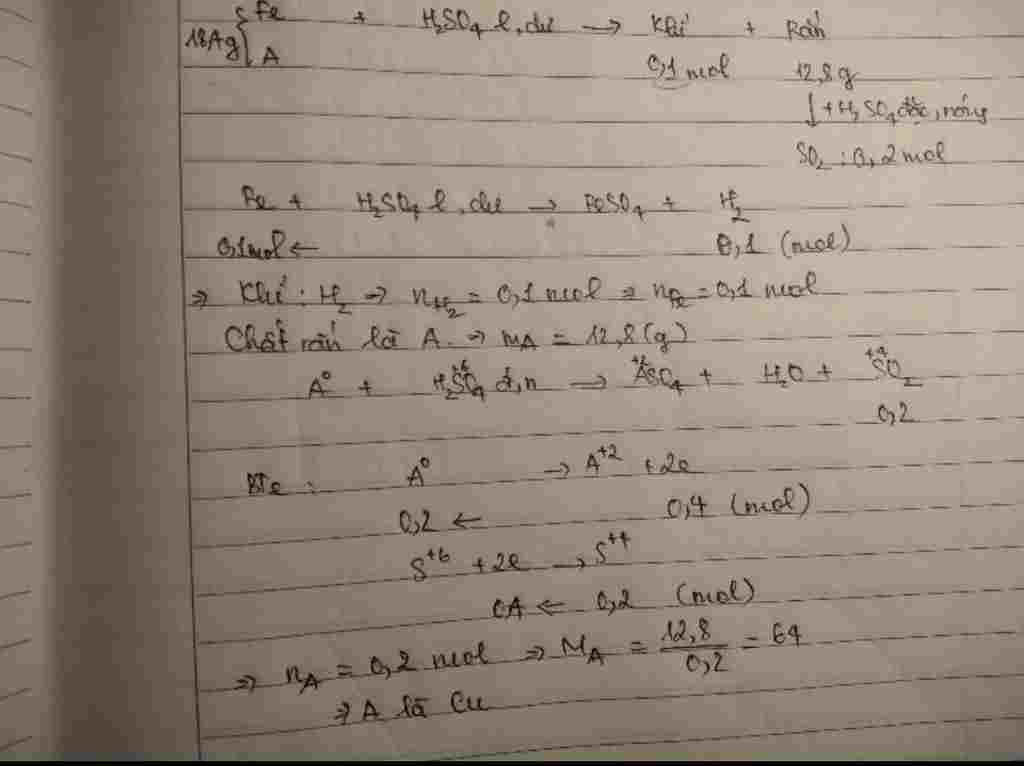 18,4g { Fe + H₂SO₄ l, dư → Khí + Rắn
A 0,1 mol 12,8g
↓ + H₂SO₄ đặc, nóng
SO₂ : 0,2 mol
Fe + H₂SO₄ l, dư → FeSO₄ + H₂
0,1 mol ← 0,1 (mol)
⇒ Khí : H₂ → nH₂ = 0,1 mol ⇒ nFe = 0,1 mol
Chất rắn là A. → mA = 12,8 (g)
A⁰ + H₂S⁺⁶O₄ đ, n → A⁺²SO₄ + H₂O + S⁺⁴O₂
0,2
A⁰ → A⁺² + 2e
0,2 ← 0,4 (mol)
S⁺⁶ + 2e → S⁺⁴
0,4 ← 0,2 (mol)
⇒ nA = 0,2 mol ⇒ MA = 12,8/0,2 = 64
⇒ A là Cu